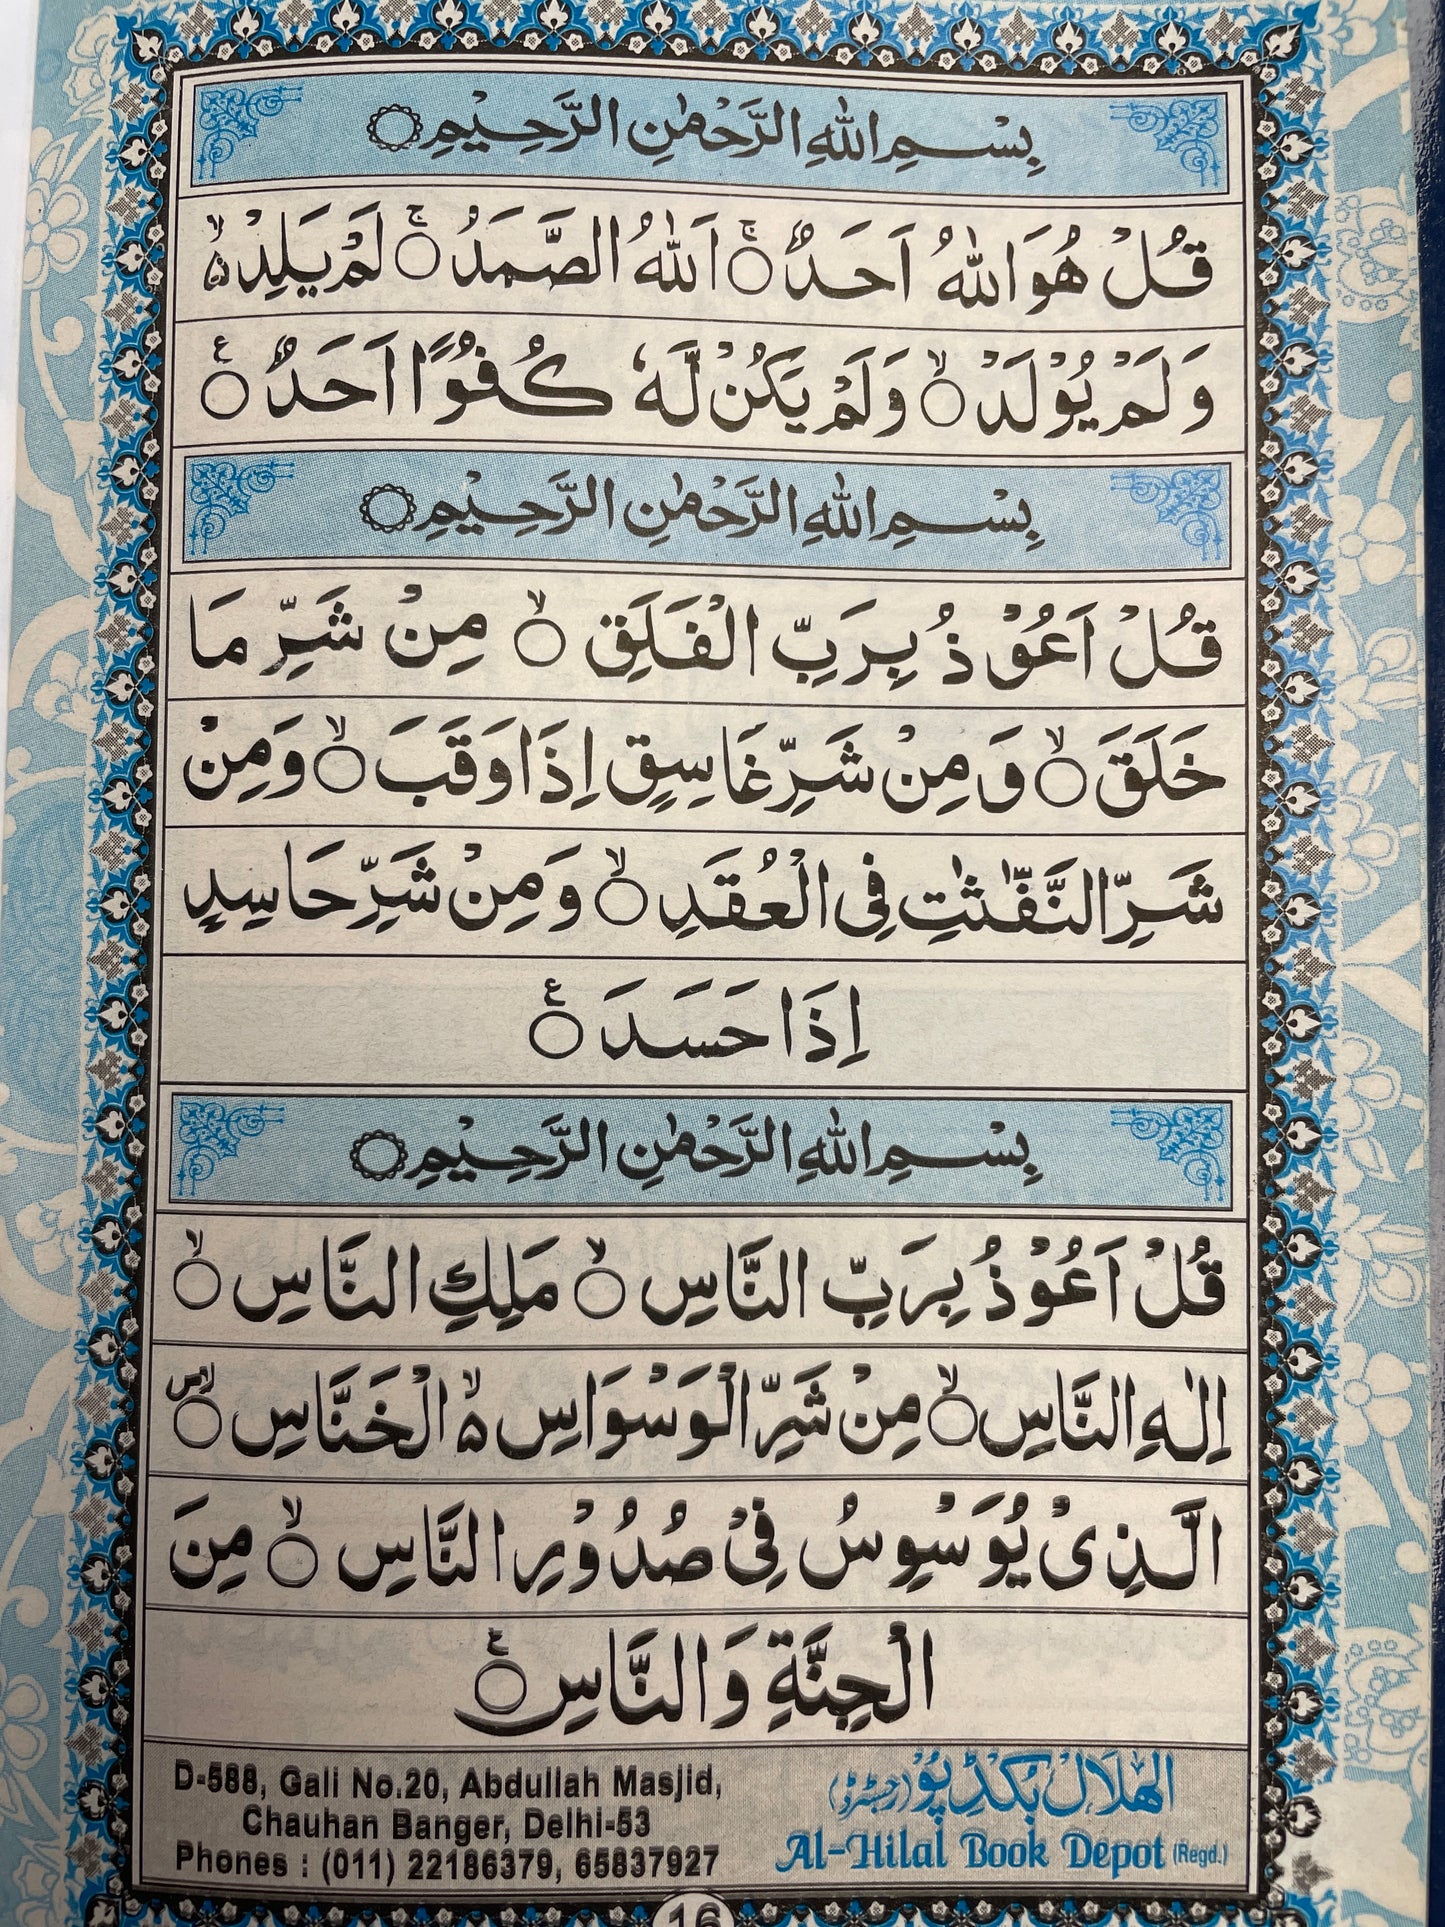 بِسْمِ اللّٰهِ الرَّحْمٰنِ الرَّحِيْمِ ○
قُلْ هُوَ اللّٰهُ اَحَدٌ ○ۚ اَللّٰهُ الصَّمَدُ ○ۚ لَمْ يَلِدْ ۙ۬ه
وَ لَمْ يُوْلَدْ ○ۙ وَ لَمْ يَكُنْ لَّهٗ كُفُوًا اَحَدٌ ○ع
بِسْمِ اللّٰهِ الرَّحْمٰنِ الرَّحِيْمِ ○
قُلْ اَعُوْذُ بِرَبِّ الْفَلَقِ ○ۙ مِنْ شَرِّ مَا
خَلَقَ ○ۙ وَ مِنْ شَرِّ غَاسِقٍ اِذَا وَقَبَ ○ۙ وَ مِنْ
شَرِّ النَّفّٰثٰتِ فِى الْعُقَدِ ○ۙ وَ مِنْ شَرِّ حَاسِدٍ
اِذَا حَسَدَ ○ع
بِسْمِ اللّٰهِ الرَّحْمٰنِ الرَّحِيْمِ ○
قُلْ اَعُوْذُ بِرَبِّ النَّاسِ ○ۙ مَلِكِ النَّاسِ ○ۙ
اِلٰهِ النَّاسِ ○ۙ مِنْ شَرِّ الْوَسْوَاسِ ۙه الْخَنَّاسِ ○ۙص
الَّذِىْ يُوَسْوِسُ فِىْ صُدُوْرِ النَّاسِ ○ۙ مِنَ
الْجِنَّةِ وَ النَّاسِ ○ع
D-588, Gali No.20, Abdullah Masjid,
Chauhan Banger, Delhi-53
Phones : (011) 22186379, 65837927
الہلال بکڈپو (رجسٹرڈ)
Al-Hilal Book Depot (Regd.)
16